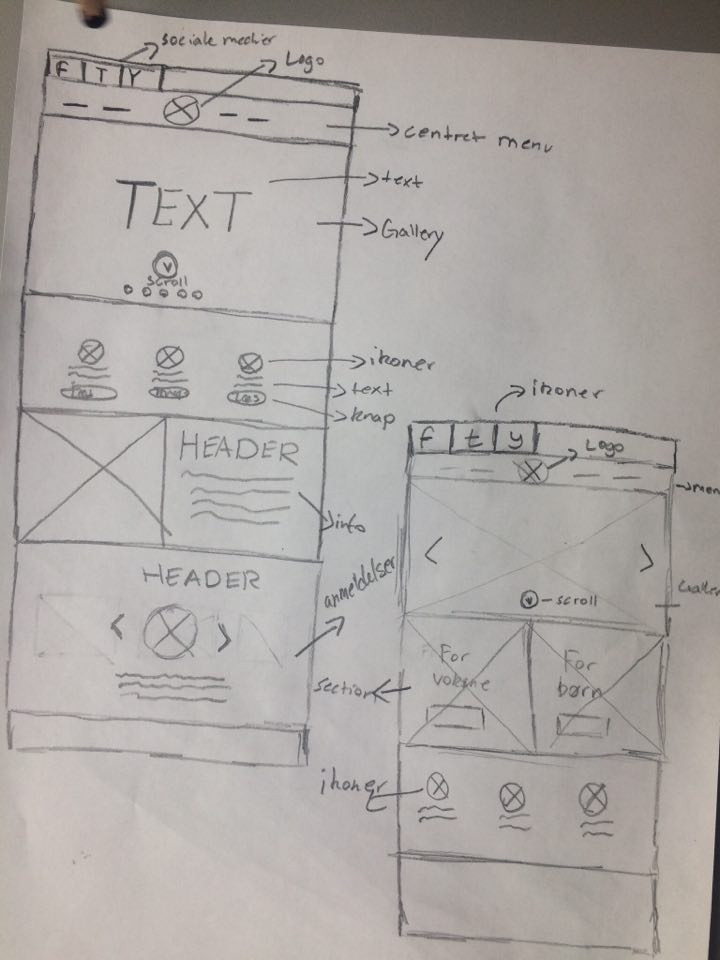 sociale medier
Logo
F T Y
centret menu
text
TEXT
Gallery
scroll
ikoner
text
knap
HEADER
info
HEADER
anmeldelser
ikoner
F t y
Logo
men
< >
scroll
section
For
voksne
For
børn
ikoner